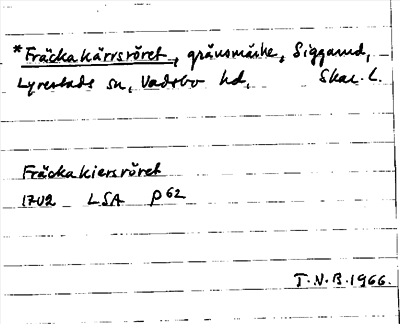 *Fräckakärrsröret, gränsmärke, Siggarud,
Lyrestads sn, Vadsbo hd, Skar. L.
Fräckakiersröret
1702 LSA P62
T.N.B. 1966.